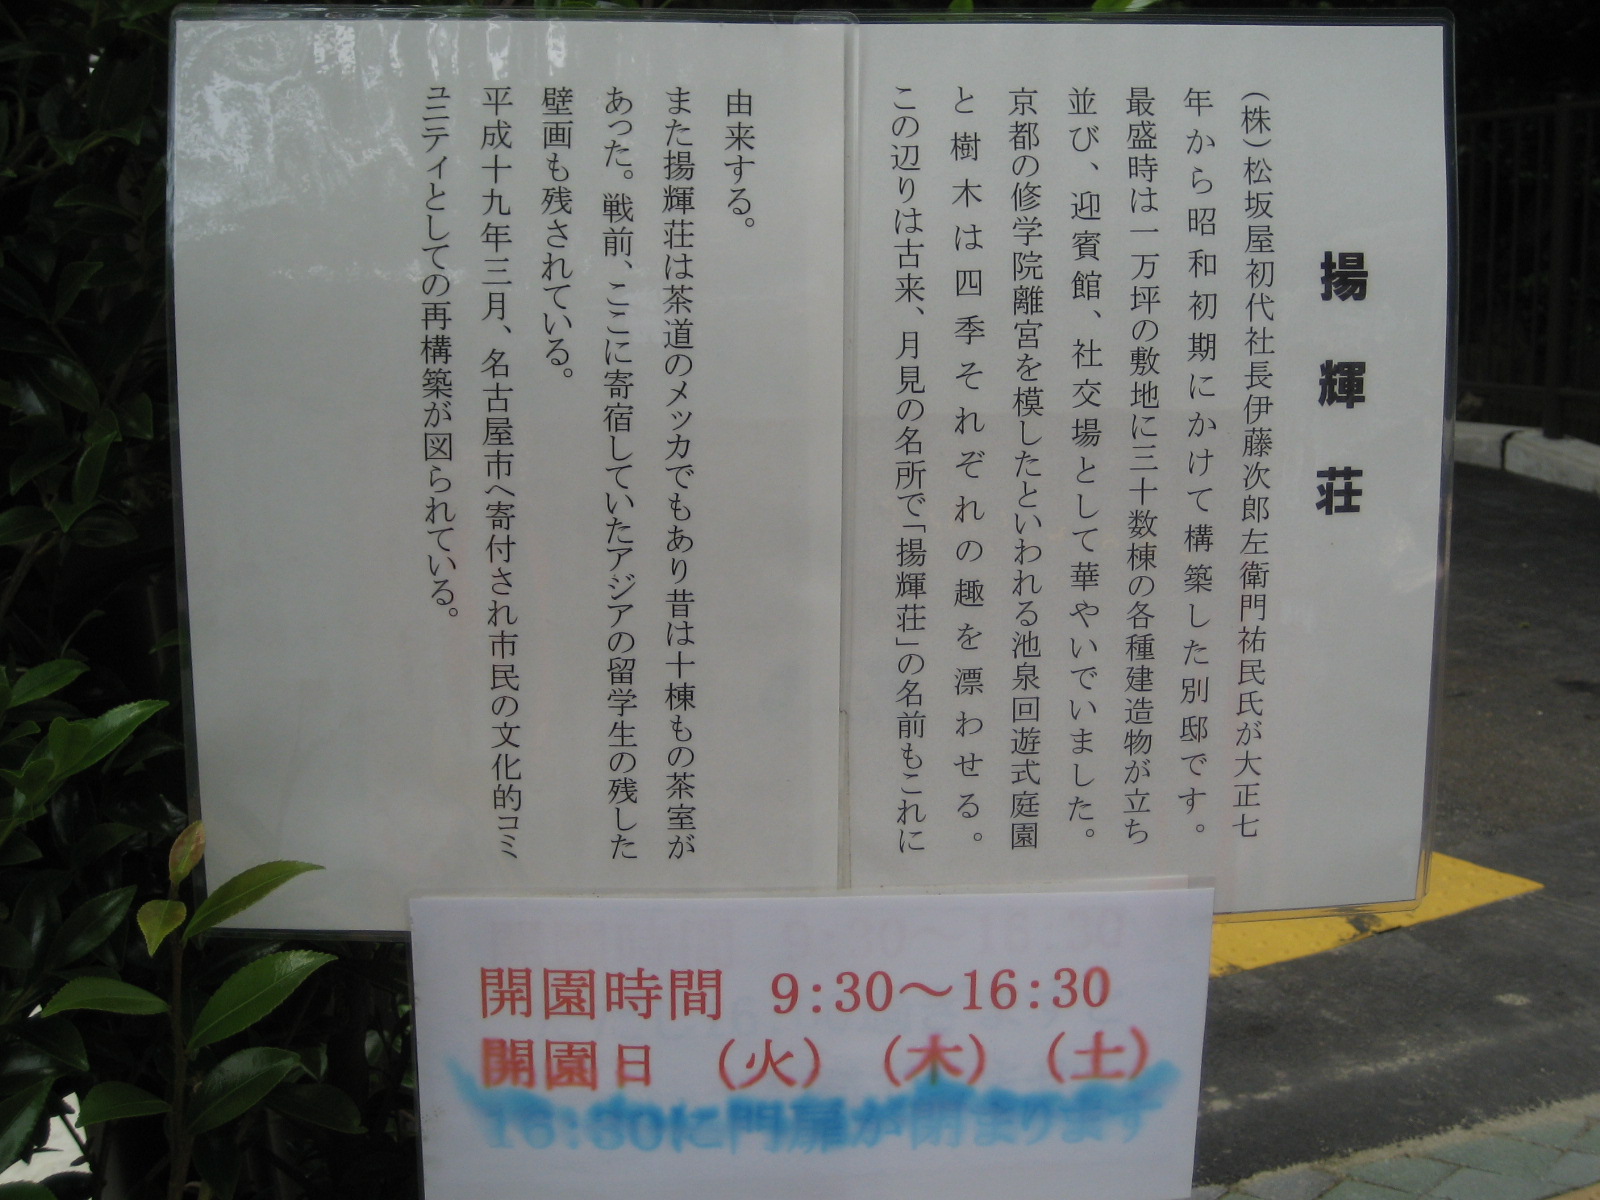 揚輝荘
(株)松坂屋初代社長伊藤次郎左衛門祐民氏が大正七
年から昭和初期にかけて構築した別邸です。
最盛時は一万坪の敷地に三十数棟の各種建造物が立ち
並び、迎賓館、社交場として華やいでいました。
京都の修学院離宮を模したといわれる池泉回遊式庭園
と樹木は四季それぞれの趣を漂わせる。
この辺りは古来、月見の名所で「揚輝荘」の名前もこれに
由来する。
また揚輝荘は茶道のメッカでもあり昔は十棟もの茶室が
あった。戦前、ここに寄宿していたアジアの留学生の残した
壁画も残されている。
平成十九年三月、名古屋市へ寄付され市民の文化的コミ
ュニティとしての再構築が図られている。
開園時間 9:30～16:30
開園日 (火) (木) (土)
16:30に門扉が閉まります